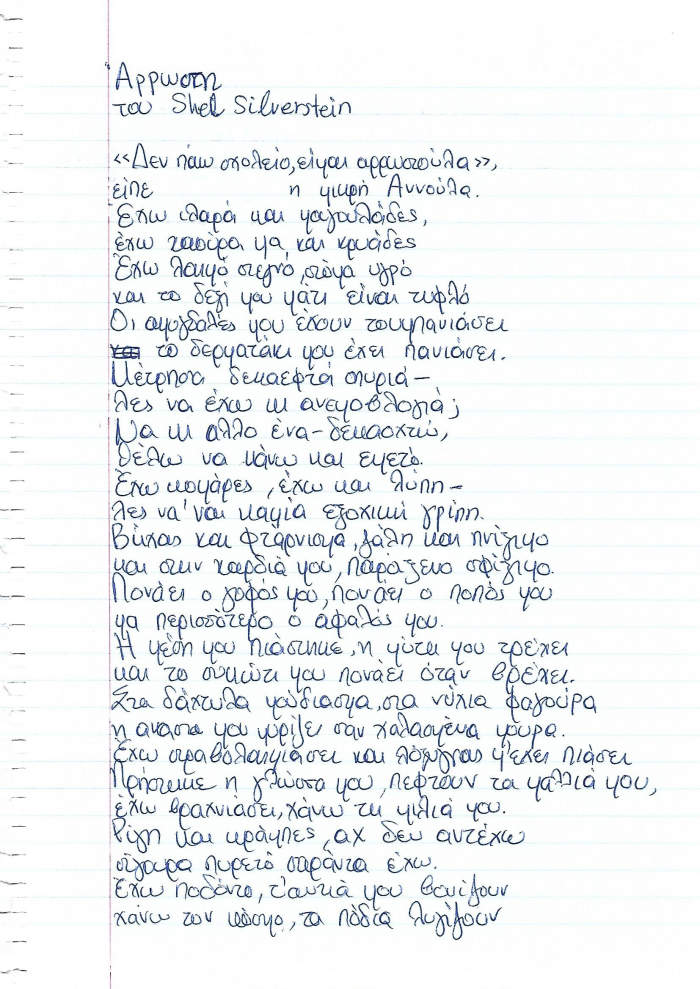 Άρρωστη
του Shel Silverstein
«Δεν πάω σχολείο, είμαι αρρωστούλα»,
είπε η μικρή Αννούλα.
Έχω ιλαρά και μαγουλάδες,
έχω και κρυάδες
Έχω λαιμό στεγνό, στόμα υγρό
και το δεξί μου μάτι είναι τυφλό
Οι αμυγδαλές μου έχουν τουμπανιάσει
το δερματάκι μου έχει πανιάσει.
Μέτρησα δεκαεφτά σπυριά –
λες να έχω κι ανεμοβλογιά;
Να κι αλλο ένα – δεκαοχτώ,
θέλω να κάνω και εμετό.
Έχω κομάρες, έχω και λύπη –
λες να 'ναι καμία εξοχική γρίπη.
Βήχας και φτάρνισμα, ζάλη και πνίξιμο
και στην καρδιά μου, παράξενο σφίξιμο.
Πονάει ο γοφός μου, πονάει ο ποπός μου
μα περισσότερο ο αφαλός μου.
Η μέση μου πιάστηκε, η μύτη μου τρέχει
και το συκώτι μου πονάει όταν βρέχει.
Στα δάχτυλα μούδιασμα, στα νύχια φαγούρα
η ανασα μου μυρίζει σαν χαλασμένα μουρα.
Έχω στραβολαιμιάσει και λόξυγκας μ' έχει πιάσει
Πρήστηκε η γλώσσα μου, πέφτουν τα μαλλιά μου,
έχω βραχνιάσει, χάνω τη μιλιά μου.
Ρίγη και κράμπες, αχ δεν αντέχω
σίγουρα πυρετό σαράντα έχω.
Έχω ποδάγρα, τ'αυτιά μου βουίζουν
χάνω τον κόσμο, τα πόδια λυγίζουν